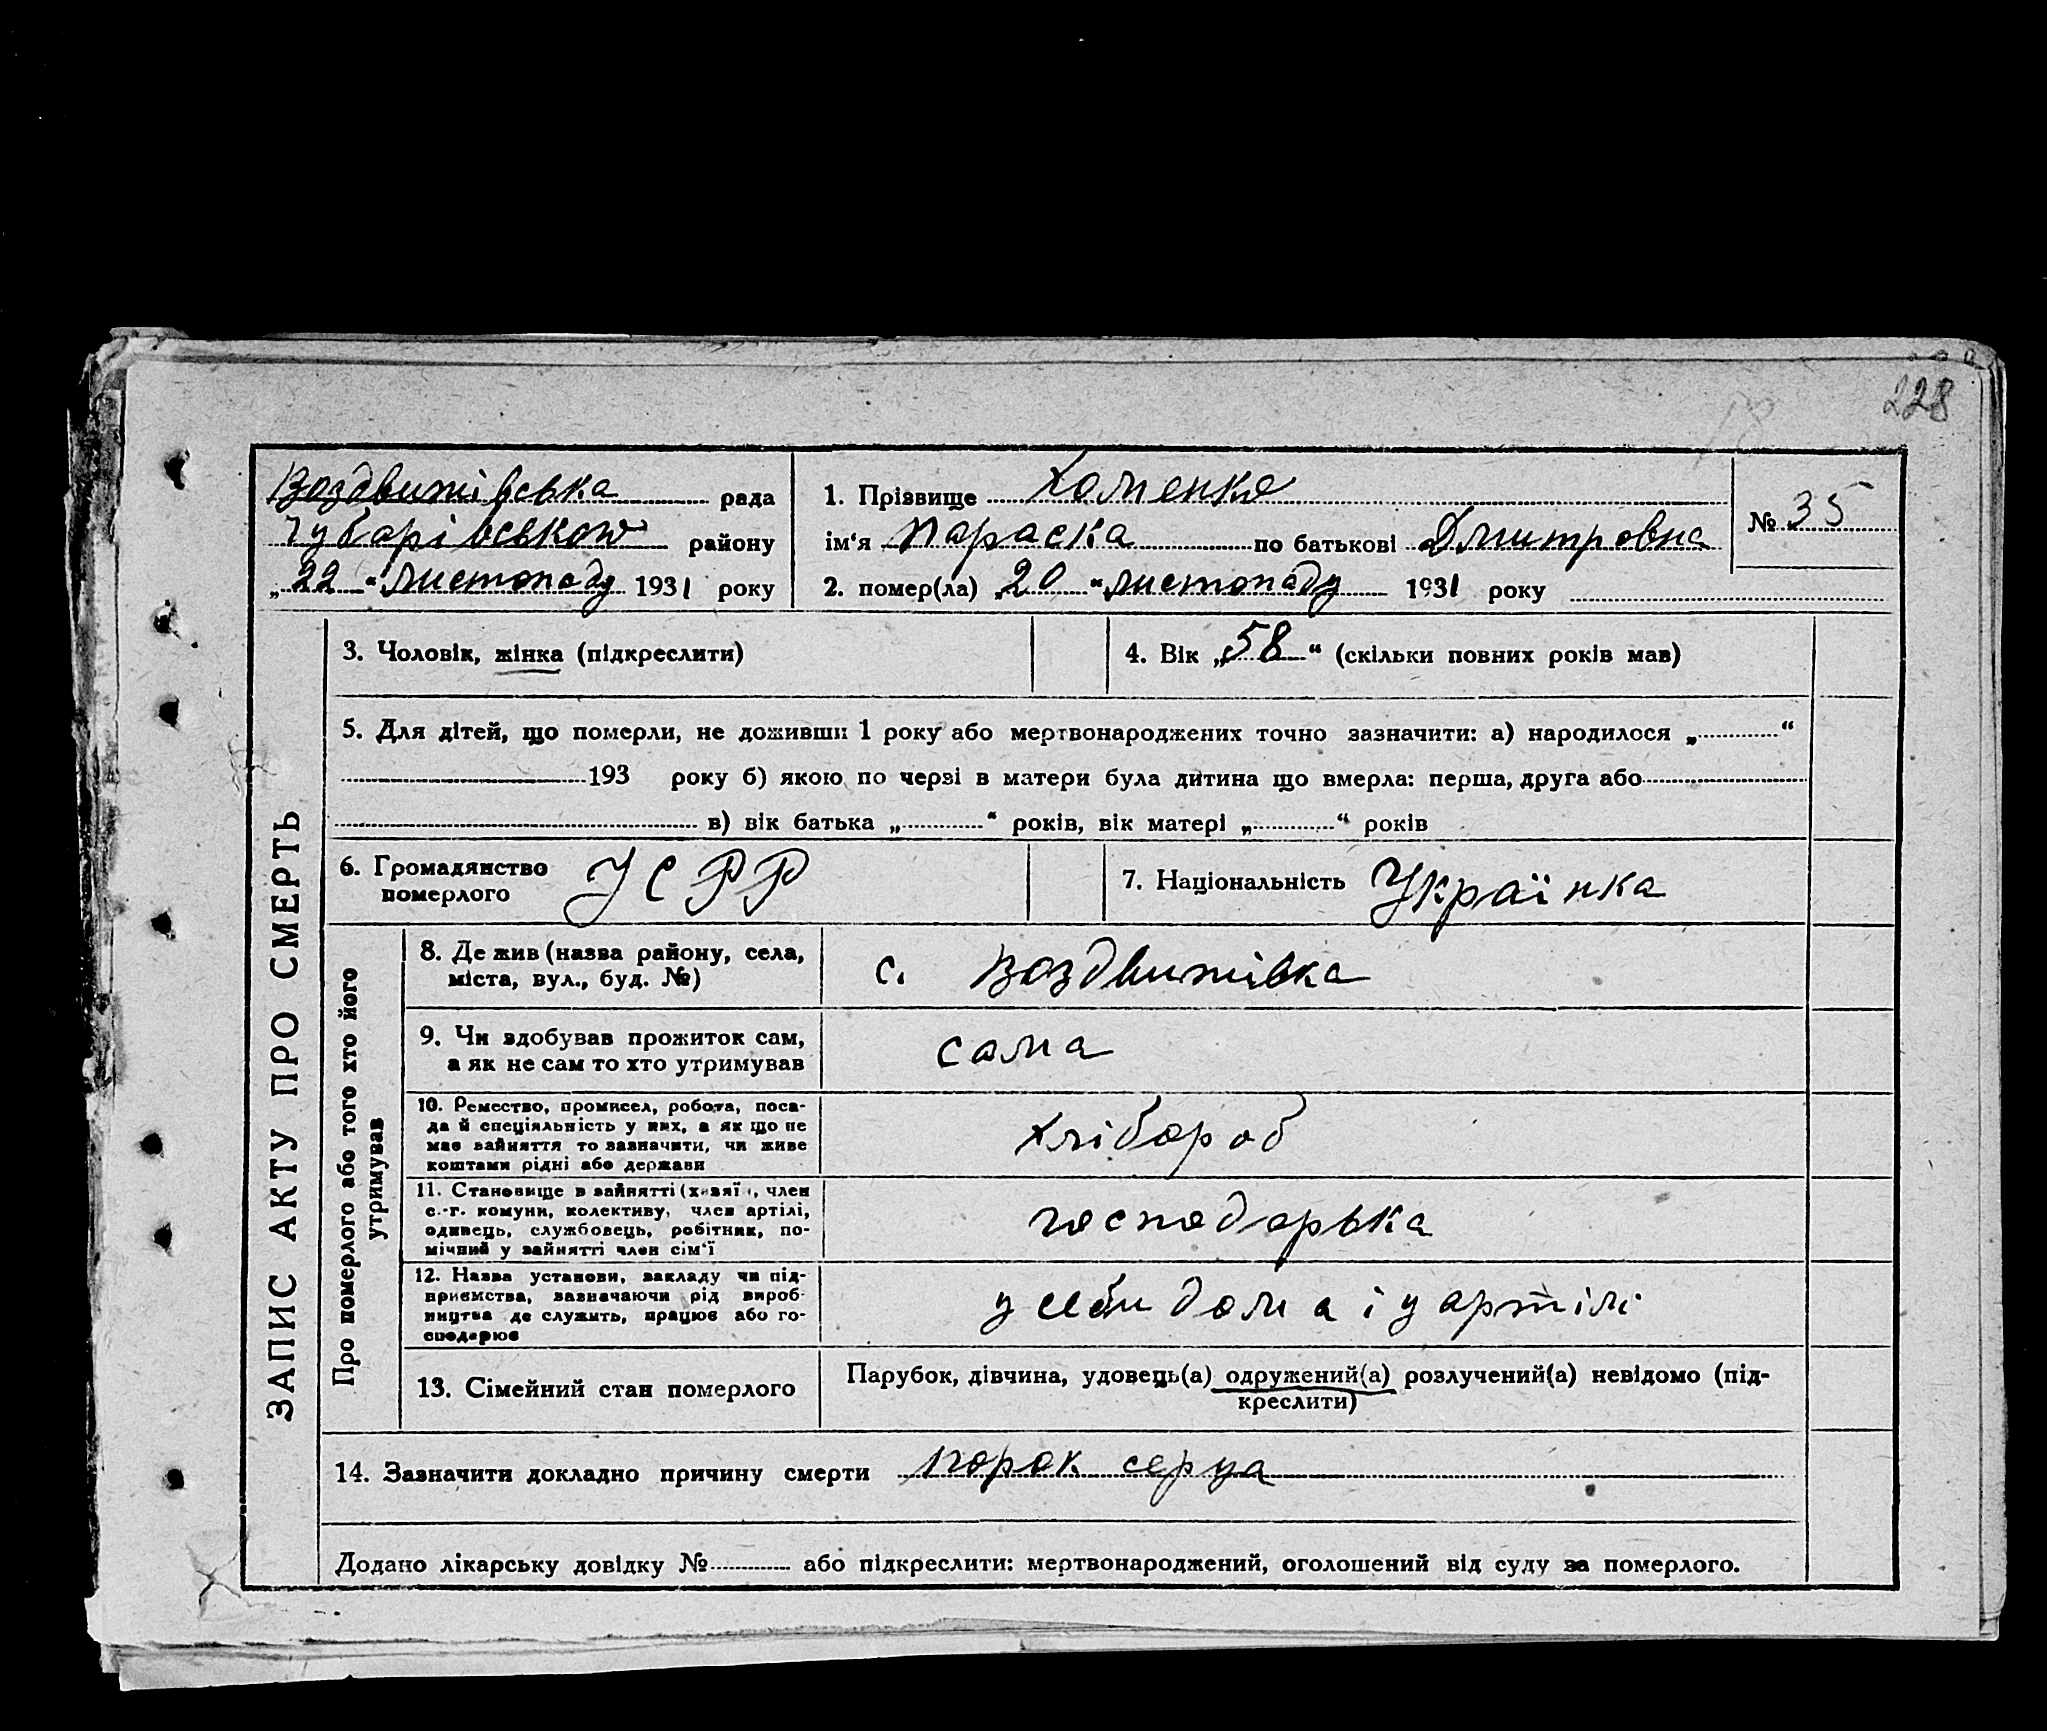 228
Воздвижівська рада
Чубарівського району
„22“ листопаду 1931 року
1. Прізвище Хоменко
ім‘я Параска по батькові Дмитровна
2. помер(ла) „20“ листопаду 1931 року
№ 35
ЗАПИС АКТУ ПРО СМЕРТЬ
3. Чоловік, жінка (підкреслити)
4. Вік „58“ (скільки повних років мав)
5. Для дітей, що померли, не доживши 1 року або мертвонароджених точно зазначити: а) народилося „ “
193 року б) якою по черзі в матери була дитина що вмерла: перша, друга або
в) вік батька „ “ років, вік матері „ “ років
6. Громадянство
померлого УСРР
7. Національність Українка
Про померлого або того хто його
утримував
8. Де жив (назва району, села,
міста, вул., буд. №)
с. Воздвижівка
9. Чи вдобував прожиток сам,
а як не сам то хто утримував
сама
10. Ремество, промисел, робота, поса-
да й спеціяльність у них, а як що не
мав зайняття то зазначити, чи живе
коштами рідні або держави
хлібороб
11. Становище в зайнятті (хазяїн, член
с.-г. комуни, колективу, член артілі,
одинець, службовець, робітник, по-
мічний у зайнятті член сім‘ї
господарька
12. Назва установи, закладу чи під-
приємства, зазначаючи рід вироб-
ництва де служить, працює або го-
сподарює
у себи дома і у артілі
13. Сімейний стан померлого
Парубок, дівчина, удовець(а) одружений(а) розлучений(а) невідомо (під-
креслити)
14. Зазначити докладно причину смерти порок серца
Додано лікарську довідку № або підкреслити: мертвонароджений, оголошений від суду за померлого.